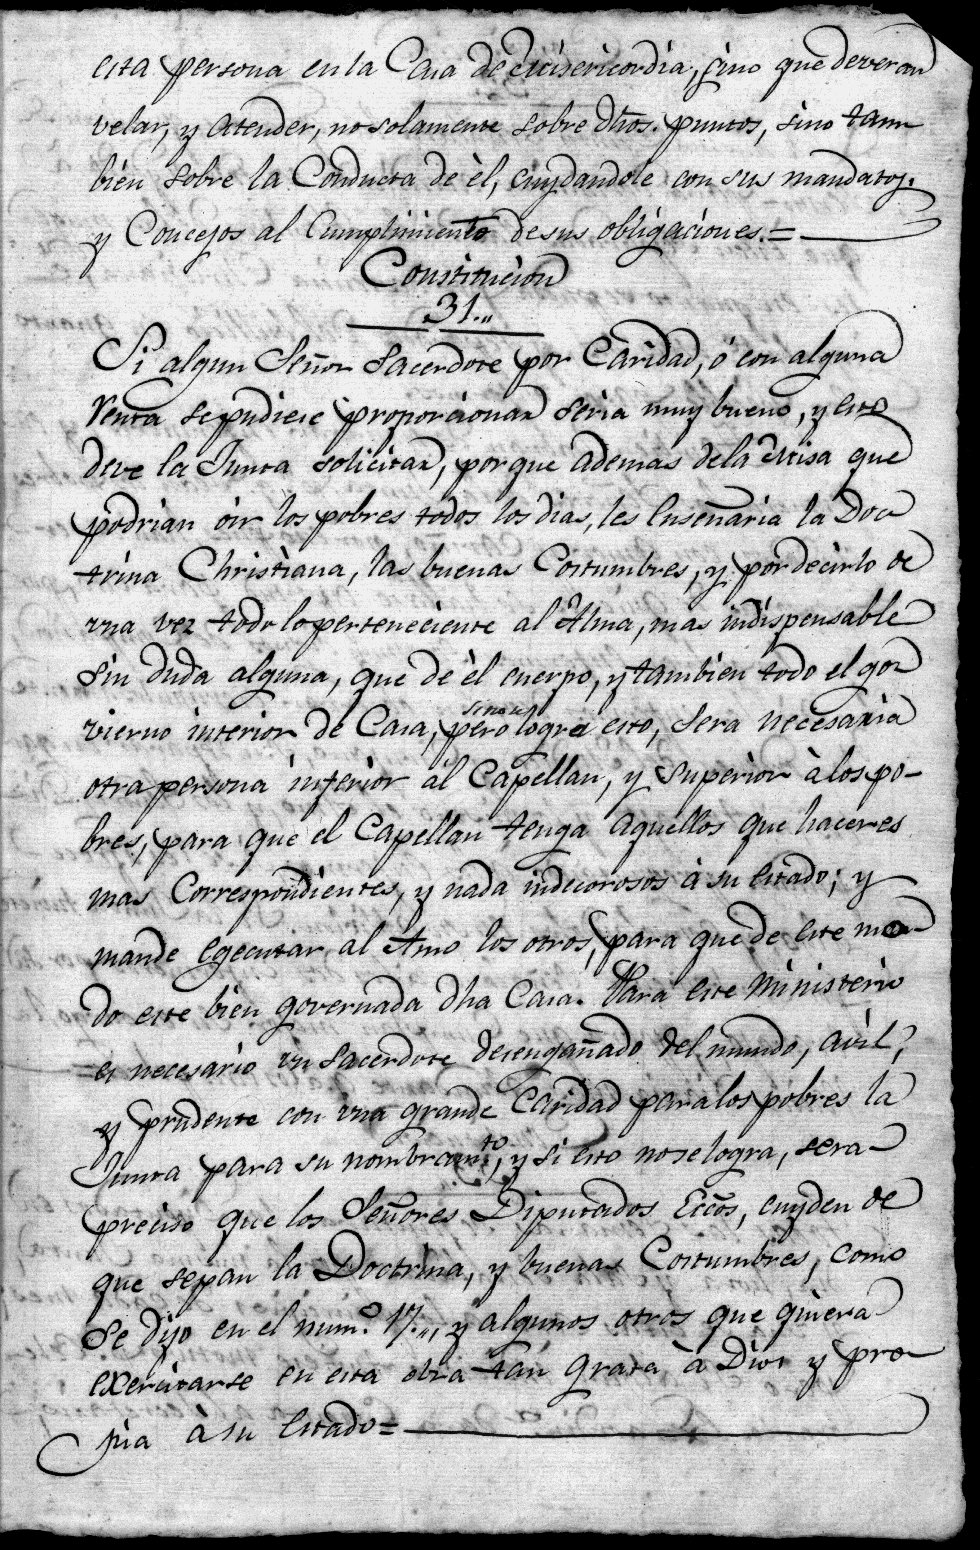 esta persona en la Casa de Misericordia, sino que deveran
velar, y atender, no solamente sobre dhõs. puntos, sino tam
bien sobre la Conducta de èl, cuydandole con sus mandatos,
y Concejos al Cumplimiento de sus obligaciones.=
Constitucion
31.,,
Si algun Señor Sacerdote por Caridad, ó con alguna
Renta se pudiese proporcionar seria muy bueno, y esto
deve la Junta solicitar, porque ademas de la Misa que
podrian oir los pobres todos los dias, les Enseñaria la Doc
trina Christiana, las buenas Costumbres, y por decirlo de
una vez todo lo perteneciente al Alma, mas indispensable
sin duda alguna, que de èl cuerpo, y tambien todo el go
vierno interior de Casa, pero si no se logra esto, sera necesaria
otra persona inferior ál Capellan, y superior à los po-
bres, para que el Capellan tenga aquellos que haceres
mas Correspondientes, y nada indecorosos à su Estado; y
mande Egecutar al Amo los otros, para que de este mo
do este bien governada dha Casa. Para este Ministerio
es necesario un Sacerdote desengañado del mundo, avil,
y prudente con una grande Caridad para los pobres la
Junta para su nombramto, y si esto no se logra, sera
preciso que los Señores Diputados Eccos, cuyden de
que sepan la Doctrina, y buenas Costumbres, como
se dijo en el num.º 17.,, y algunos otros que quiera
exercitarse en esta obra tan grata à Dios y pro
pia à su Estado=